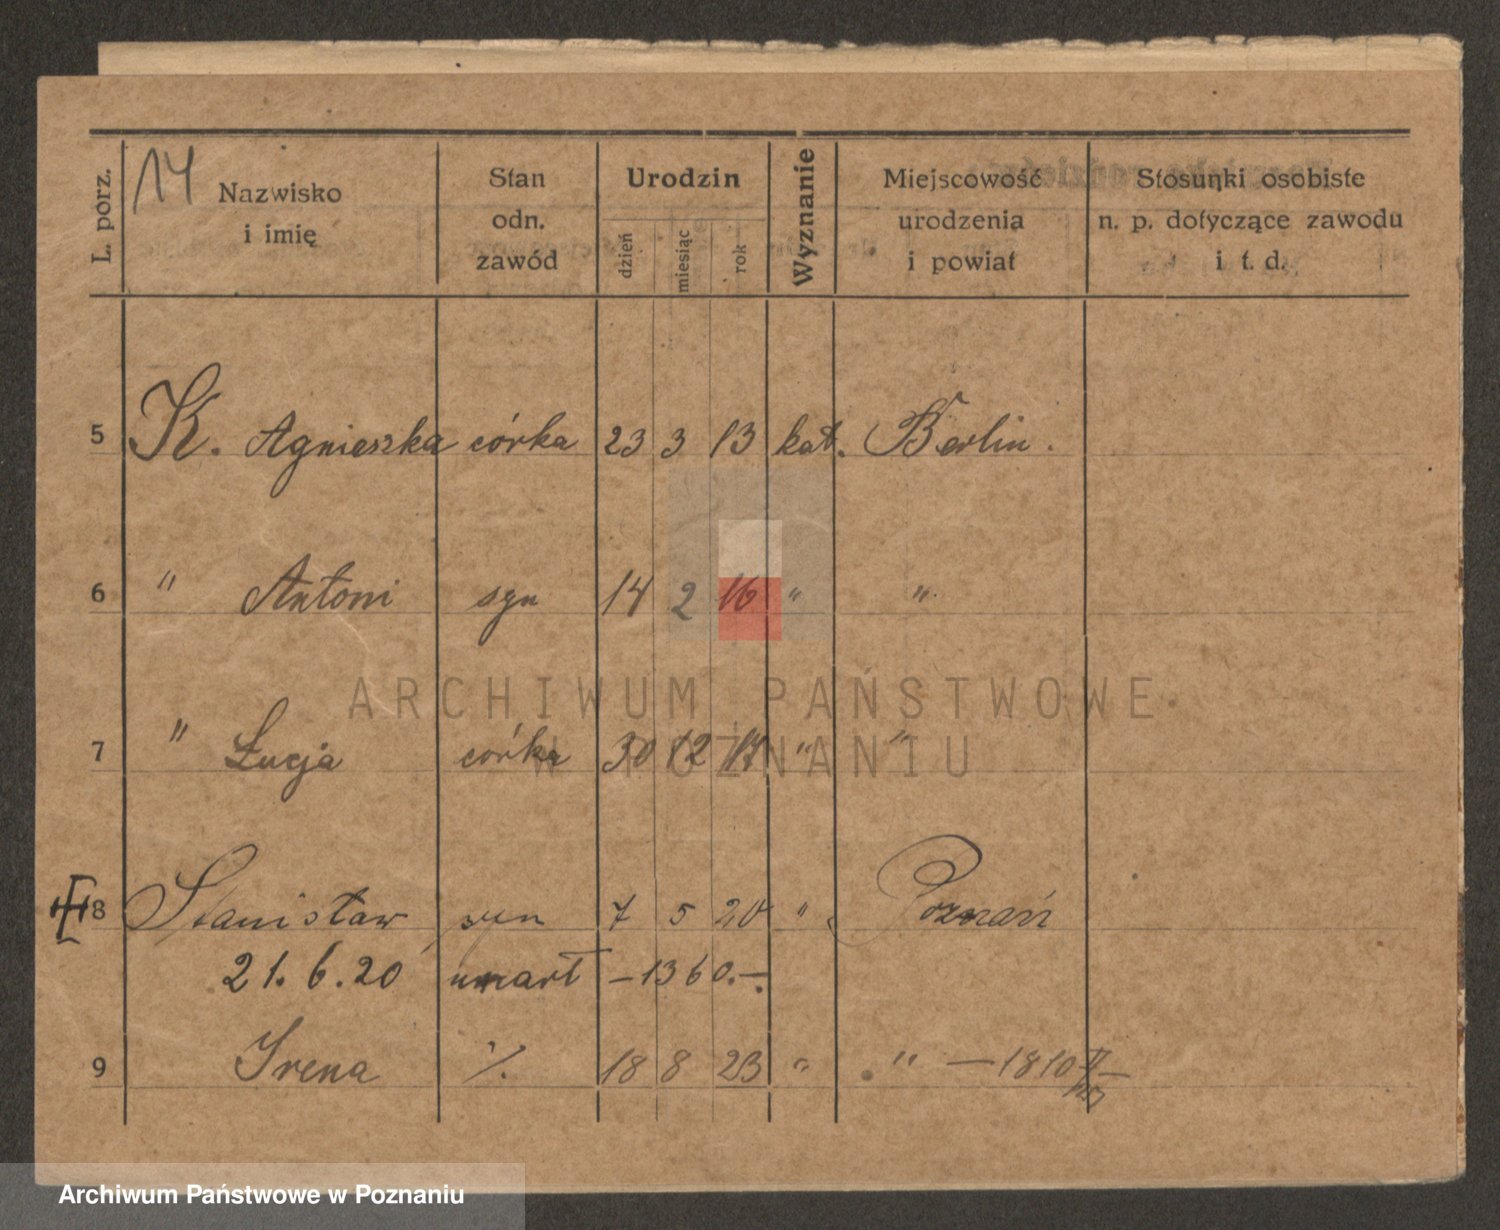 14
L. porz. Nazwisko i imię Stan odn. zawód Urodzin dzień miesiąc rok Wyznanie Miejscowość urodzenia i powiat Stosunki osobiste n. p. dotyczące zawodu i t. d.
5 K. Agnieszka córka 23 3 13 kat. Berlin.
6 " Antoni syn 14 2 16 " "
ARCHIWUM PAŃSTWOWE
W POZNANIU
7 " Łucja córka 30 12 17 " "
8 Stanisław syn 7 5 20 " Poznań
21.6.20 umarł – 1360. –
9 Irena ./. 18 8 23 " " – 1810
Archiwum Państwowe w Poznaniu